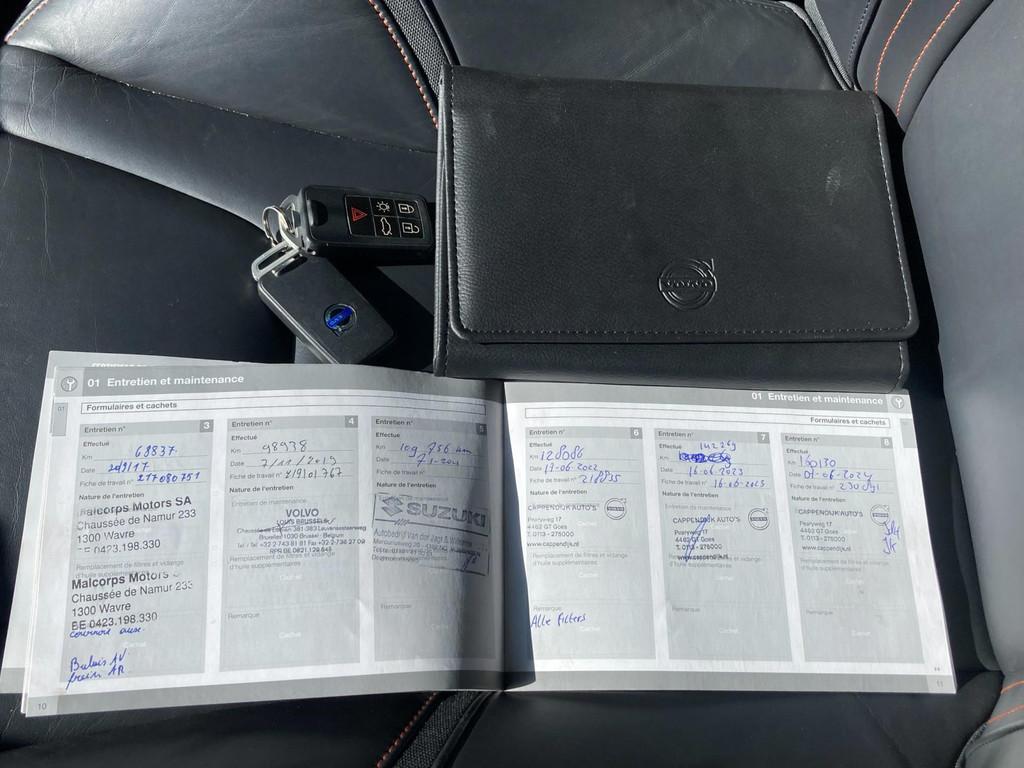 VOLVO
01 Entretien et maintenance
01
Formulaires et cachets
Entretien n° 3
Effectué
Km 68837
Date
Fiche de travail n°
Nature de l'entretien
Malcorps Motors SA
Chaussée de Namur 233
1300 Wavre
BE 0423.198.330
Remplacement de filtres et vidange
d'huile supplémentaires
Malcorps Motors
Chaussée de Namur 233
1300 Wavre
BE 0423.198.330
Balais AV
frein AR
10
Entretien n° 4
Effectué
Km 98938
Date 7/11/2019
Fiche de travail n°
Nature de l'entretien
Entretien de maintenance
VOLVO
Bruxelles/1030 Brussel - Belgium
Remplacement de filtres et vidange
d'huile supplémentaires
Cachet
Remarque
Cachet
Entretien n° 5
Effectué
Km 109 756 km
Date
Fiche de travail n°
Nature de l'entretien
SUZUKI
Autobedrijf Van der Jagt &
Cachet
Remarque
Cachet
01 Entretien et maintenance
Formulaires et cachets
Entretien n° 6
Effectué
Km 128086
Date 17-06-2022
Fiche de travail n°
Nature de l'entretien
CAPPENDIJK AUTO'S
Pearyweg 17
4462 GT Goes
T. 0113 - 275000
www.cappendijk.nl
Remplacement de filtres et vidange
d'huile supplémentaires
Cachet
Remarque
Alle filters
Entretien n° 7
Effectué
142269
Km
Date 16-06-2023
Fiche de travail n° 16-06-2023
Nature de l'entretien
Entretien de maintenance
CAPPENDIJK AUTO'S
Pearyweg 17
4462 GT Goes
T. 0113 - 275000
www.cappendijk.nl
Remplacement de filtres et vidange
d'huile supplémentaires
Cachet
Remarque
Cachet
Entretien n° 8
Effectué
Km 160130
Date 01-06-2024
Fiche de travail n°
Nature de l'entretien
CAPPENDIJK AUTO'S
Pearyweg 17
4462 GT Goes
T. 0113 - 275000
www.cappendijk.nl
Remplacement de filtres et vidange
d'huile supplémentaires
Cachet
Remarque
Cachet
11